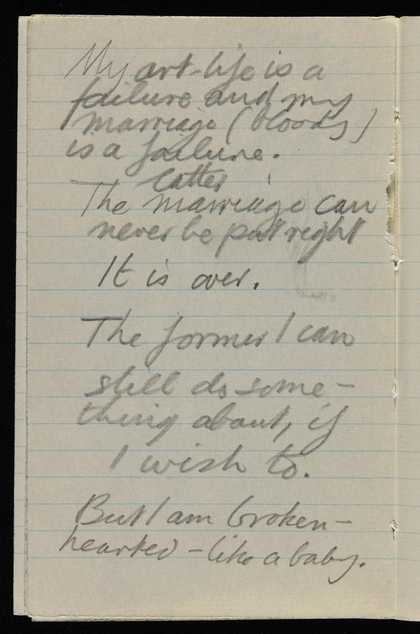 My art-life is a
failure and my
marriage (bloody)
is a failure.
latter
The marriage can
never be put right
It is over.
The former I can
still do some-
thing about, if
I wish to.
But I am broken-
hearted - like a baby.